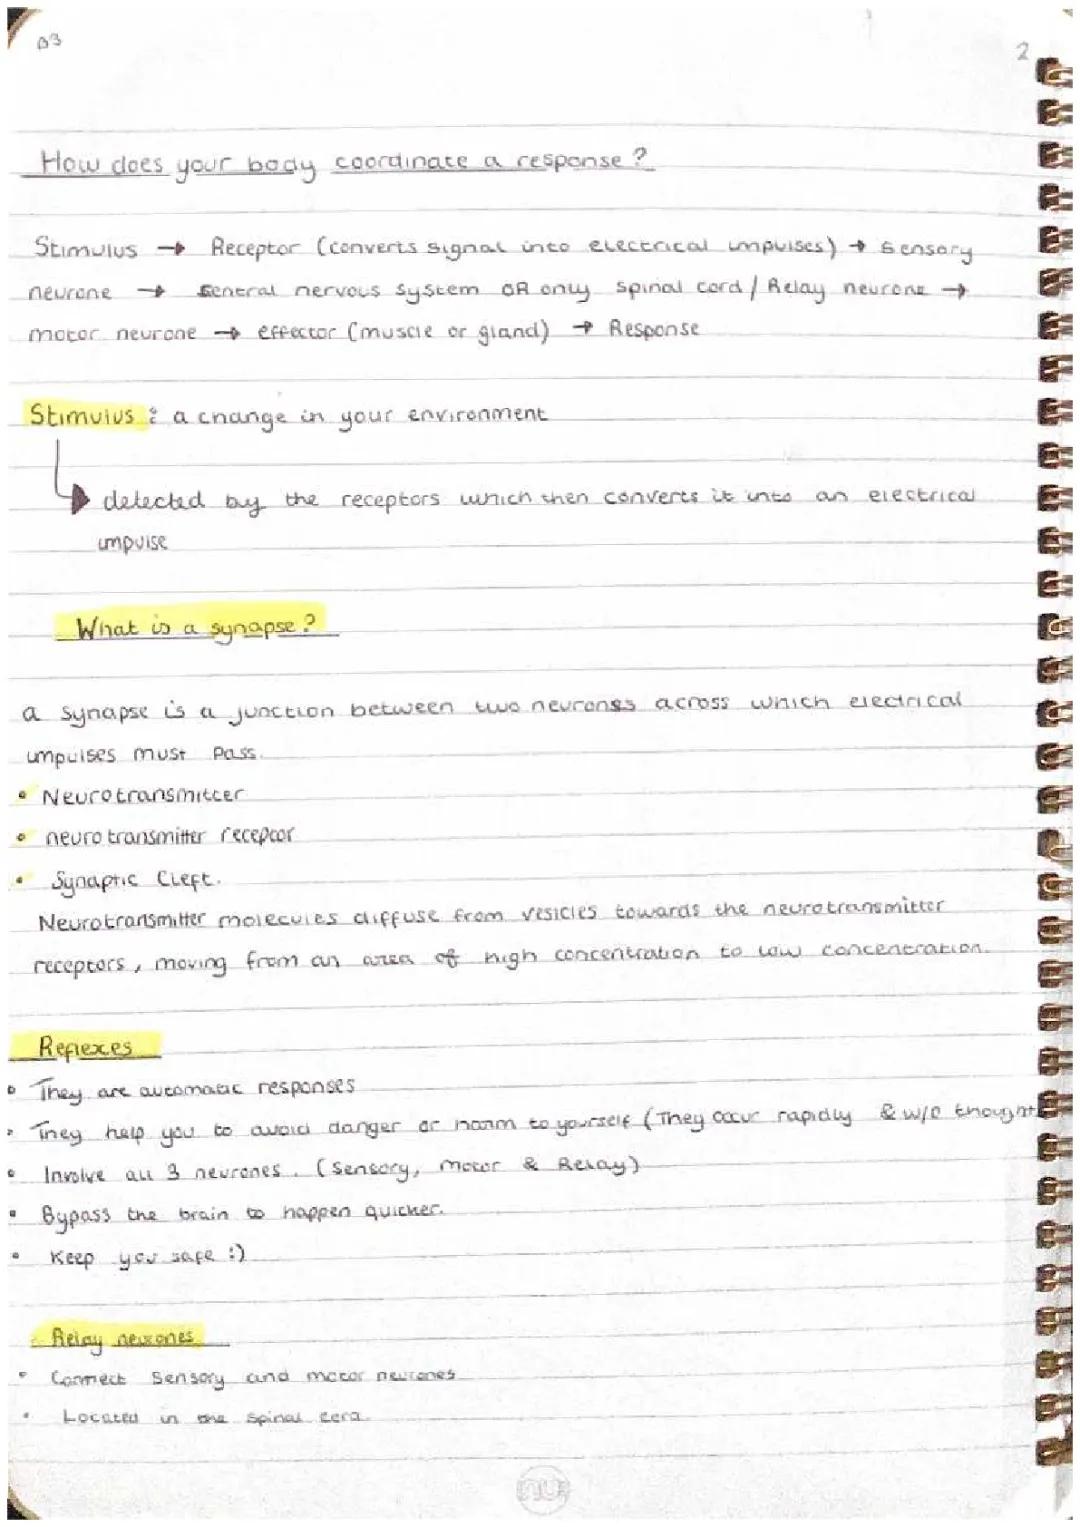 B3
2
How does your body coordinate a response?
Stimulus → Receptor (converts signal into electrical impulses) → Sensory
neurone → Central nervous system OR only spinal cord / Relay neurone →
motor neurone → effector (muscle or gland) → Response
Stimulus: a change in your environment
detected by the receptors which then converts it into an electrical
impulse
What is a synapse?
a synapse is a junction between two neurones across which electrical
impulses must pass.
• Neurotransmitter
• neurotransmitter receptor
• Synaptic Cleft.
Neurotransmitter molecules diffuse from vesicles towards the neurotransmitter
receptors, moving from an area of high concentration to low concentration.
Reflexes
• They are automatic responses
• They help you to avoid danger or harm to yourself (They occur rapidly & w/o thought
• Involve all 3 neurones. (Sensory, motor & Relay)
• Bypass the brain to happen quicker.
• Keep you safe :)
Relay neurones
• Connect Sensory and motor neurones
• Located in the spinal cord